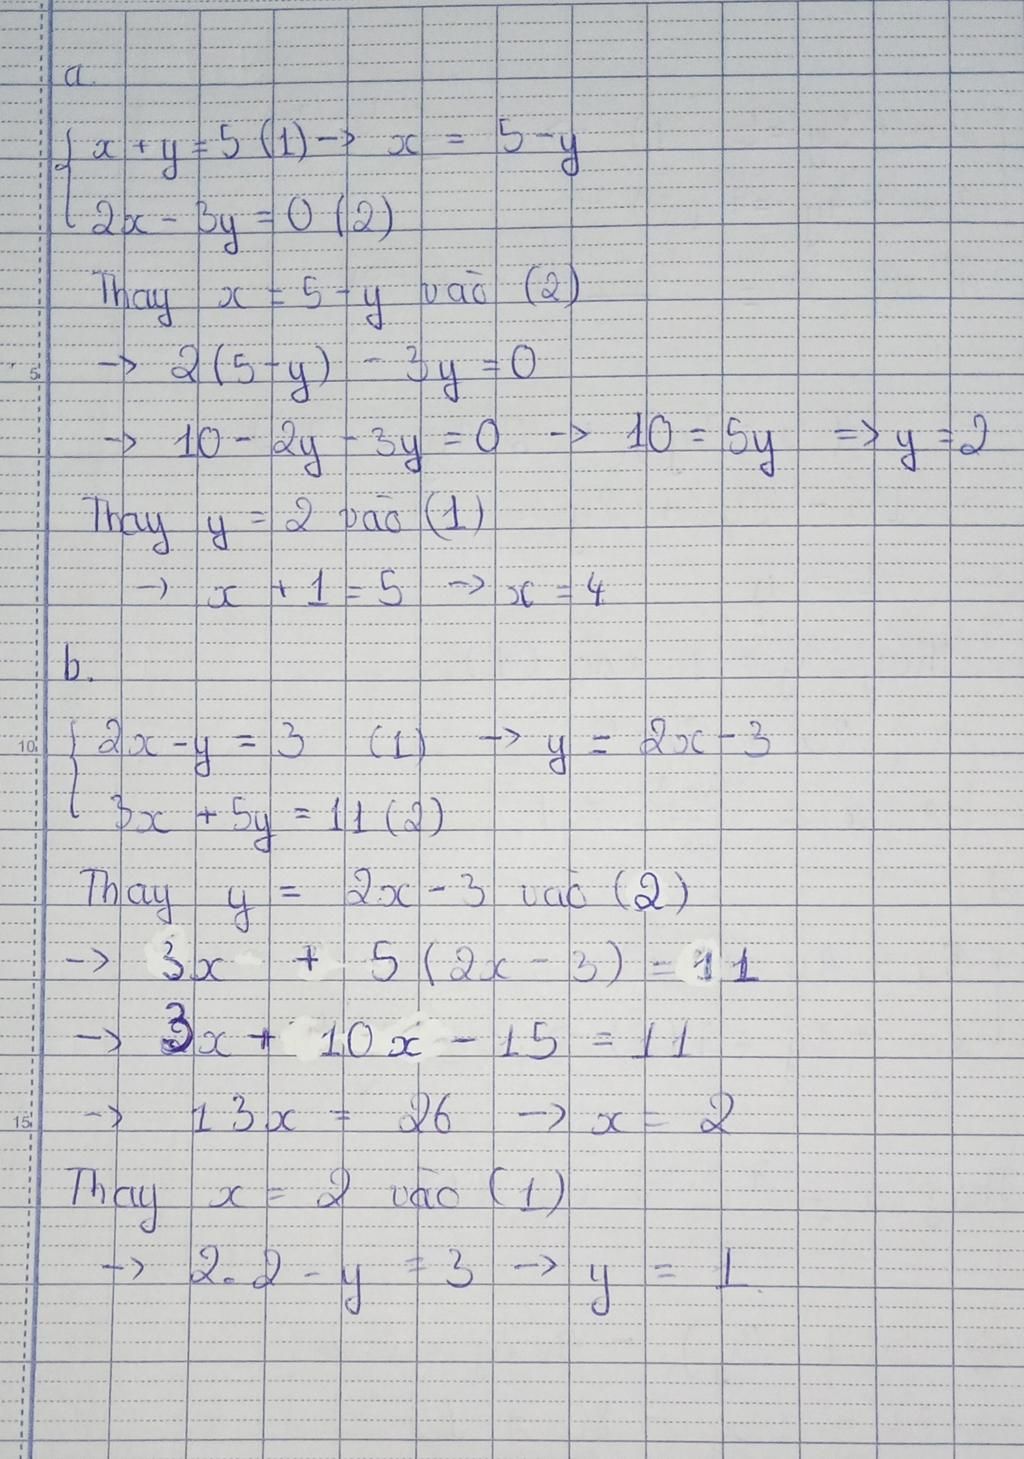 a.
x + y = 5 (1) -> x = 5 - y
2x - 3y = 0 (2)
Thay x = 5 - y vào (2)
5
-> 2(5 - y) - 3y = 0
-> 10 - 2y - 3y = 0 -> 10 = 5y => y = 2
Thay y = 2 vào (1)
-> x + 1 = 5 -> x = 4
b.
10
2x - y = 3 (1) -> y = 2x - 3
3x + 5y = 11 (2)
Thay y = 2x - 3 vào (2)
-> 3x + 5(2x - 3) = 11
-> 3x + 10x - 15 = 11
15
-> 13x = 26 -> x = 2
Thay x = 2 vào (1)
-> 2.2 - y = 3 -> y = 1